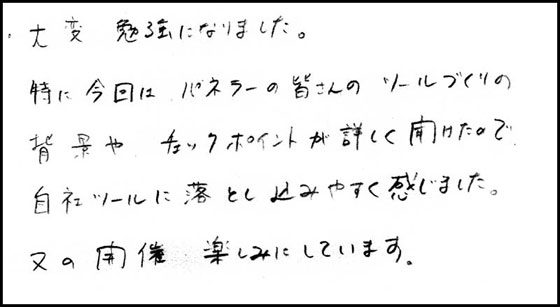 大変 勉強になりました。
特に今回は パネラーの皆さんの ツールづくりの
背景や チェックポイントが 詳しく 聞けたので
自社ツールに 落とし込みやすく感じました。
又の開催 楽しみにしています。